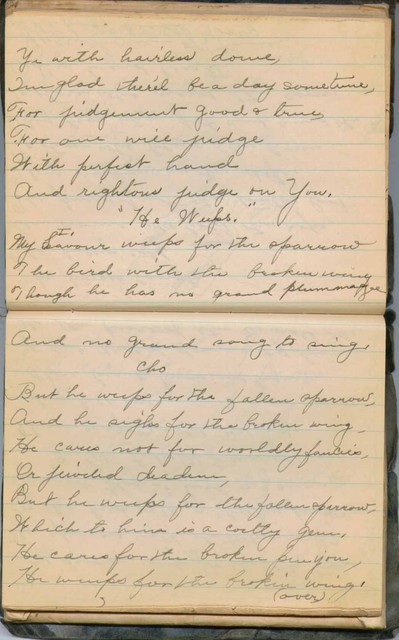 Ye with hairless dome,
I'm glad there'll be a day sometime,
For judgement good & true,
For one will judge
With perfect hand
And rightous judge on You.
"He Weeps."
My Savour weeps for the sparrow
The bird with the broken wing
Though he has no grand plummage
And no grand song to sing.
cho
But he weeps for the fallen sparrow,
And he sighs for the broken wing,
He cares not for worldly fancies,
Or jeweled diadem,
But he weeps for the fallen sparrow,
Which to him is a costly gem.
He cares for the broken pinion,
He weeps for the broken wing.
(over)